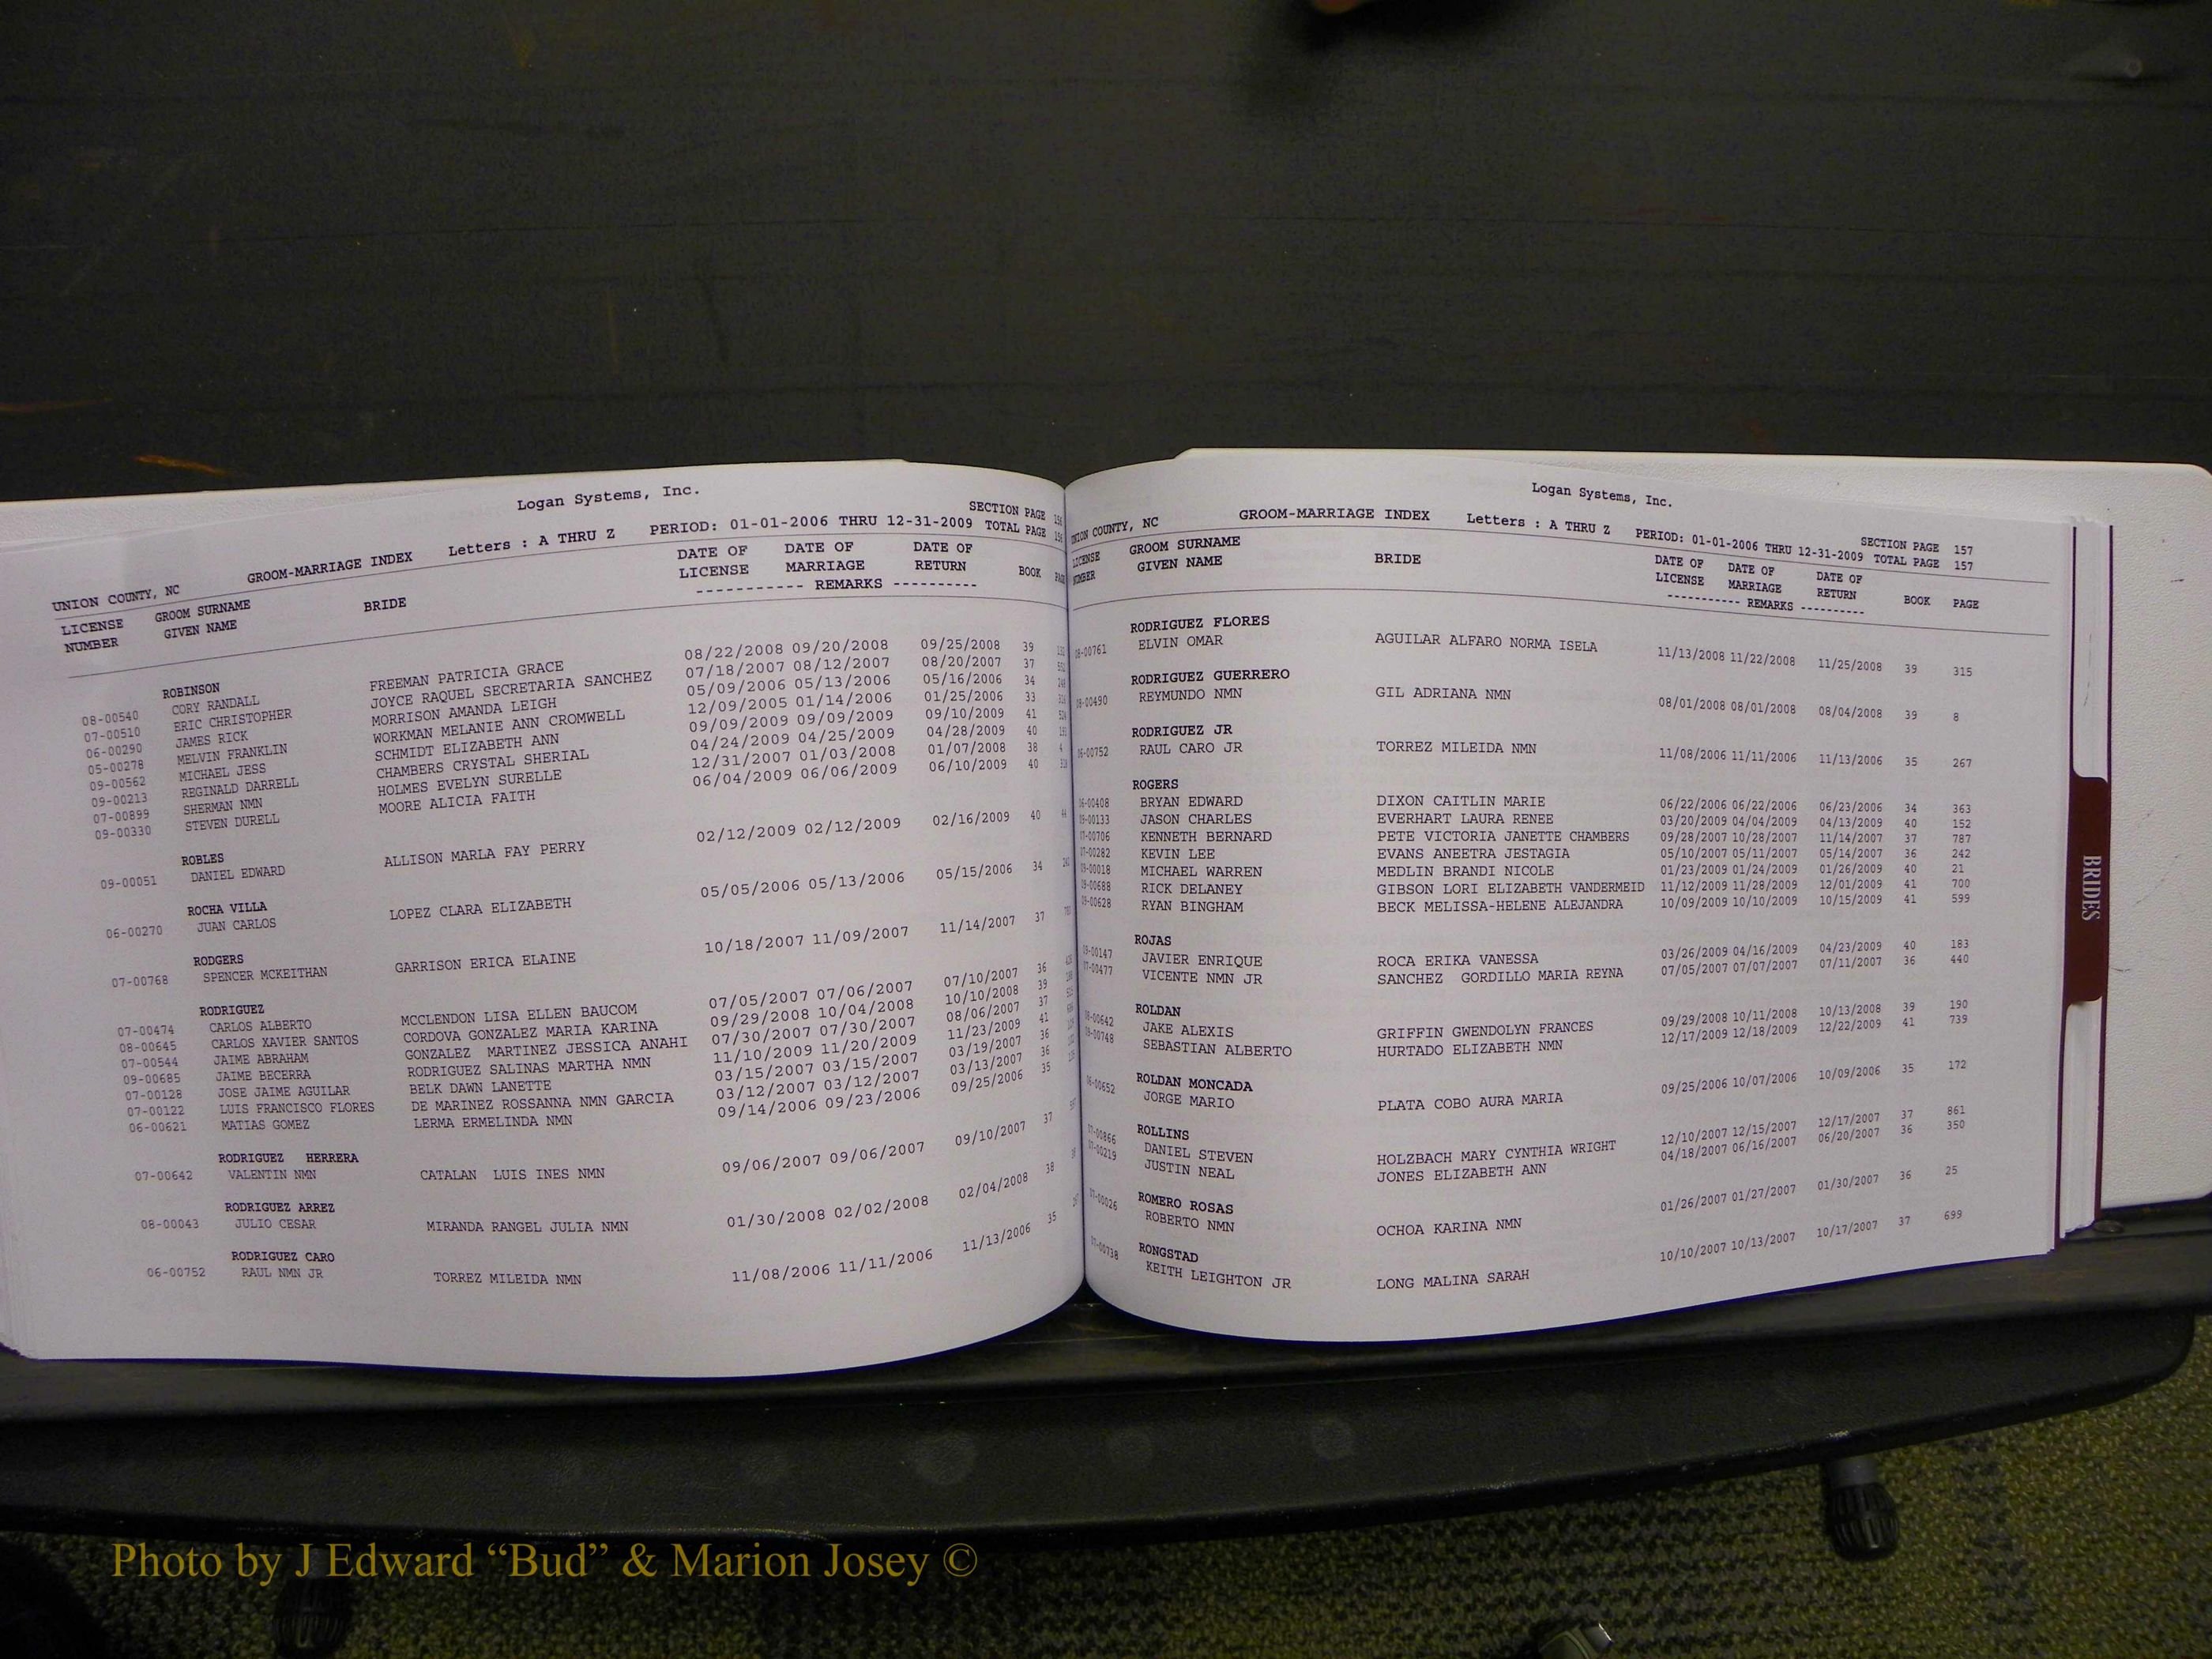 Logan Systems, Inc.
SECTION PAGE 156
UNION COUNTY, NC GROOM-MARRIAGE INDEX Letters : A THRU Z PERIOD: 01-01-2006 THRU 12-31-2009 TOTAL PAGE 156
LICENSE GROOM SURNAME BRIDE DATE OF DATE OF DATE OF
NUMBER GIVEN NAME LICENSE MARRIAGE RETURN BOOK
----------- REMARKS ----------
ROBINSON
08-00540 CORY RANDALL FREEMAN PATRICIA GRACE 08/22/2008 09/20/2008 09/25/2008 39
07-00510 ERIC CHRISTOPHER JOYCE RAQUEL SECRETARIA SANCHEZ 07/18/2007 08/12/2007 08/20/2007 37
06-00290 JAMES RICK MORRISON AMANDA LEIGH 05/09/2006 05/13/2006 05/16/2006 34
05-00278 MELVIN FRANKLIN WORKMAN MELANIE ANN CROMWELL 12/09/2005 01/14/2006 01/25/2006 33
09-00562 MICHAEL JESS SCHMIDT ELIZABETH ANN 09/09/2009 09/09/2009 09/10/2009 41
09-00213 REGINALD DARRELL CHAMBERS CRYSTAL SHERIAL 04/24/2009 04/25/2009 04/28/2009 40
07-00899 SHERMAN NMN HOLMES EVELYN SURELLE 12/31/2007 01/03/2008 01/07/2008 38 4
09-00330 STEVEN DURELL MOORE ALICIA FAITH 06/04/2009 06/06/2009 06/10/2009 40
ROBLES
09-00051 DANIEL EDWARD ALLISON MARLA FAY PERRY 02/12/2009 02/12/2009 02/16/2009 40
ROCHA VILLA
06-00270 JUAN CARLOS LOPEZ CLARA ELIZABETH 05/05/2006 05/13/2006 05/15/2006 34
RODGERS
07-00768 SPENCER MCKEITHAN GARRISON ERICA ELAINE 10/18/2007 11/09/2007 11/14/2007 37
RODRIGUEZ
07-00474 CARLOS ALBERTO MCCLENDON LISA ELLEN BAUCOM 07/05/2007 07/06/2007 07/10/2007 36
08-00645 CARLOS XAVIER SANTOS CORDOVA GONZALEZ MARIA KARINA 09/29/2008 10/04/2008 10/10/2008 39
07-00544 JAIME ABRAHAM GONZALEZ MARTINEZ JESSICA ANAHI 07/30/2007 07/30/2007 08/06/2007 37
09-00685 JAIME BECERRA RODRIGUEZ SALINAS MARTHA NMN 11/10/2009 11/20/2009 11/23/2009 41
07-00128 JOSE JAIME AGUILAR BELK DAWN LANETTE 03/15/2007 03/15/2007 03/19/2007 36
07-00122 LUIS FRANCISCO FLORES DE MARINEZ ROSSANNA NMN GARCIA 03/12/2007 03/12/2007 03/13/2007 36
06-00621 MATIAS GOMEZ LERMA ERMELINDA NMN 09/14/2006 09/23/2006 09/25/2006 35
RODRIGUEZ HERRERA
07-00642 VALENTIN NMN CATALAN LUIS INES NMN 09/06/2007 09/06/2007 09/10/2007 37
RODRIGUEZ ARREZ
08-00043 JULIO CESAR MIRANDA RANGEL JULIA NMN 01/30/2008 02/02/2008 02/04/2008 38
RODRIGUEZ CARO
06-00752 RAUL NMN JR TORREZ MILEIDA NMN 11/08/2006 11/11/2006 11/13/2006 35
Logan Systems, Inc.
SECTION PAGE 157
UNION COUNTY, NC GROOM-MARRIAGE INDEX Letters : A THRU Z PERIOD: 01-01-2006 THRU 12-31-2009 TOTAL PAGE 157
LICENSE GROOM SURNAME BRIDE DATE OF DATE OF DATE OF
NUMBER GIVEN NAME LICENSE MARRIAGE RETURN BOOK PAGE
----------- REMARKS ----------
RODRIGUEZ FLORES
08-00761 ELVIN OMAR AGUILAR ALFARO NORMA ISELA 11/13/2008 11/22/2008 11/25/2008 39 315
RODRIGUEZ GUERRERO
08-00490 REYMUNDO NMN GIL ADRIANA NMN 08/01/2008 08/01/2008 08/04/2008 39 8
RODRIGUEZ JR
06-00752 RAUL CARO JR TORREZ MILEIDA NMN 11/08/2006 11/11/2006 11/13/2006 35 267
ROGERS
06-00408 BRYAN EDWARD DIXON CAITLIN MARIE 06/22/2006 06/22/2006 06/23/2006 34 363
09-00133 JASON CHARLES EVERHART LAURA RENEE 03/20/2009 04/04/2009 04/13/2009 40 152
07-00706 KENNETH BERNARD PETE VICTORIA JANETTE CHAMBERS 09/28/2007 10/28/2007 11/14/2007 37 787
07-00282 KEVIN LEE EVANS ANEETRA JESTAGIA 05/10/2007 05/11/2007 05/14/2007 36 242
09-00018 MICHAEL WARREN MEDLIN BRANDI NICOLE 01/23/2009 01/24/2009 01/26/2009 40 21
09-00688 RICK DELANEY GIBSON LORI ELIZABETH VANDERMEID 11/12/2009 11/28/2009 12/01/2009 41 700
09-00628 RYAN BINGHAM BECK MELISSA-HELENE ALEJANDRA 10/09/2009 10/10/2009 10/15/2009 41 599
ROJAS
09-00147 JAVIER ENRIQUE ROCA ERIKA VANESSA 03/26/2009 04/16/2009 04/23/2009 40 183
07-00477 VICENTE NMN JR SANCHEZ GORDILLO MARIA REYNA 07/05/2007 07/07/2007 07/11/2007 36 440
ROLDAN
08-00642 JAKE ALEXIS GRIFFIN GWENDOLYN FRANCES 09/29/2008 10/11/2008 10/13/2008 39 190
09-00748 SEBASTIAN ALBERTO HURTADO ELIZABETH NMN 12/17/2009 12/18/2009 12/22/2009 41 739
ROLDAN MONCADA
06-00652 JORGE MARIO PLATA COBO AURA MARIA 09/25/2006 10/07/2006 10/09/2006 35 172
ROLLINS
07-00866 DANIEL STEVEN HOLZBACH MARY CYNTHIA WRIGHT 12/10/2007 12/15/2007 12/17/2007 37 861
07-00219 JUSTIN NEAL JONES ELIZABETH ANN 04/18/2007 06/16/2007 06/20/2007 36 350
ROMERO ROSAS
07-00026 ROBERTO NMN OCHOA KARINA NMN 01/26/2007 01/27/2007 01/30/2007 36 25
RONGSTAD
07-00738 KEITH LEIGHTON JR LONG MALINA SARAH 10/10/2007 10/13/2007 10/17/2007 37 699
BRIDES
Photo by J Edward “Bud” & Marion Josey ©